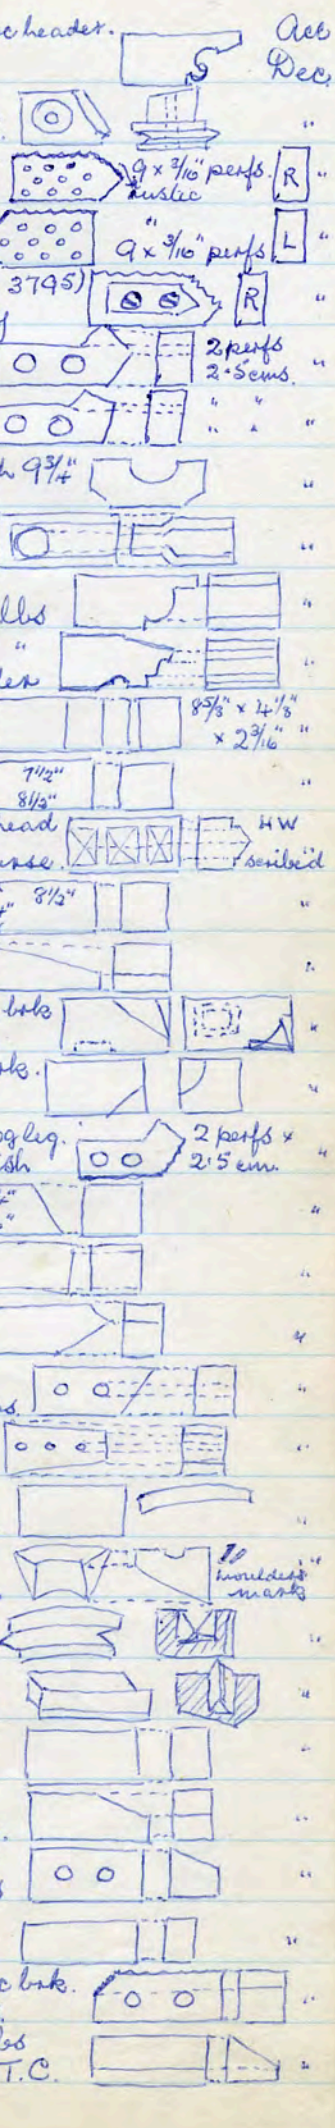 c header. Acc
Dec.
"
9 x 3/16" perfs. R "
Rustic
"
9 x 3/16" perfs L "
3795) R "
2 perfs
2.5cms. "
" "
" " "
9 3/4" "
"
lbs "
"
"
8 5/8" x 4 1/8"
x 2 3/16" "
7 1/2" "
8 1/2"
head HW
scribed "
8 1/2" "
"
brk "
rk. "
og leg. 2 perfs x
ish 2.5 cm. "
"
"
"
"
"
"
10 "
moulders
mark
"
"
"
"
"
"
c brk. "
les
T.C. "